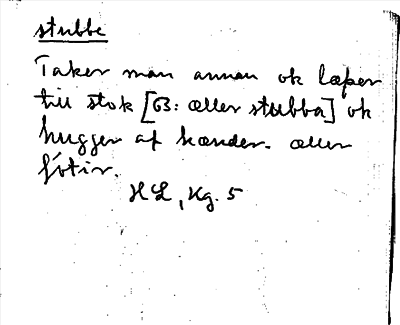 stubbe
Taker man annan ok løper
till stok [B: æller stubba] ok
hugger af hænder. æller
fötir.
HL, Kg. 5